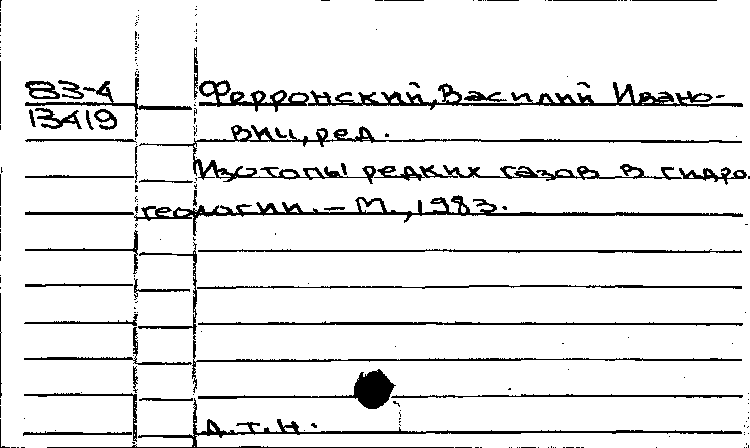 83-4 Ферронский, Василий Ивано-
13419 вич, ред.
Изотопы редких газов в гидро
геологии. - М., 1983.
д.т.н.